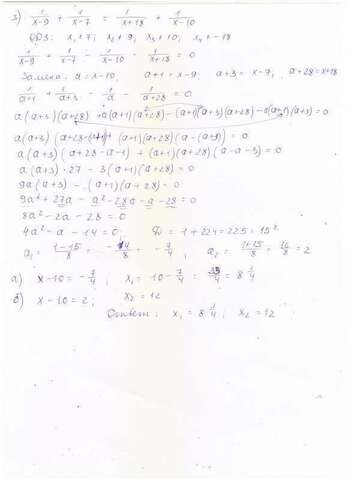 3) 1/(x-9) + 1/(x-7) = 1/(x+18) + 1/(x-10)
ОДЗ: x≠7; x≠9; x≠10; x≠-18
1/(x-9) + 1/(x-7) - 1/(x-10) - 1/(x+18) = 0
Замена: a = x-10, a+1 = x-9; a+3 = x-7; a+28 = x+18
1/(a+1) + 1/(a+3) - 1/a - 1/(a+28) = 0
a(a+3)(a+28-a-1) + (a+1)(a+28)(a-a-3) = 0
a(a+3)·27 - 3(a+1)(a+28) = 0
9a(a+3) - (a+1)(a+28) = 0
9a² + 27a - a² - 28a - a - 28 = 0
8a² - 2a - 28 = 0
4a² - a - 14 = 0; D = 1 + 224 = 225 = 15²
a₁ = (1-15)/8 = -14/8 = -7/4; a₂ = (1+15)/8 = 16/8 = 2
а) x-10 = -7/4; x₁ = 10 - 7/4 = 33/4 = 8 1/4
б) x-10 = 2; x₂ = 12
Ответ: x₁ = 8 1/4; x₂ = 12